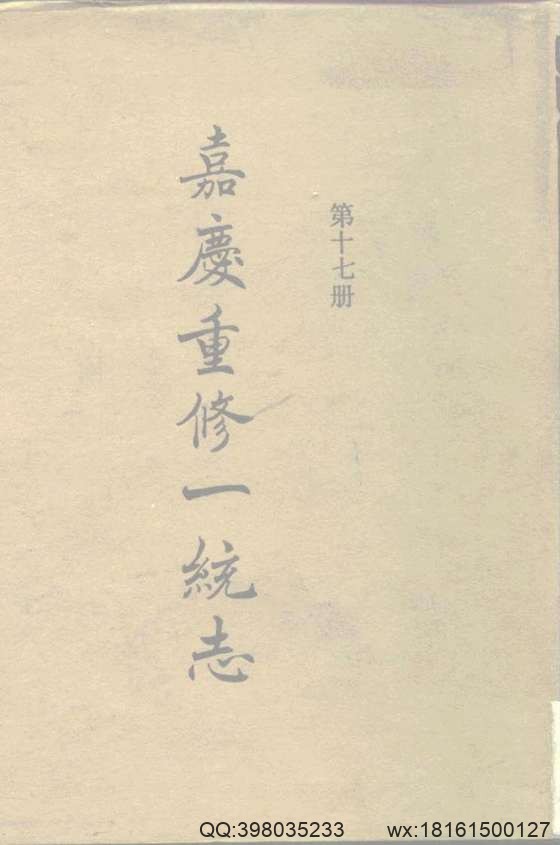 第十七册
嘉慶重修一統志
QQ:398035233 wx:18161500127